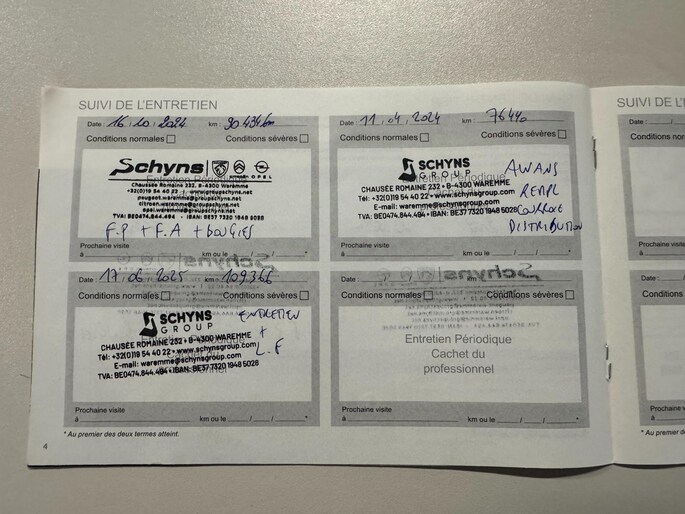 SUIVI DE L'ENTRETIEN
Date : 16.10.2024 km : 90434km
Conditions normales Conditions sévères
Schyns
OPEL
Chaussée Romaine 232 • B-4300 Waremme
+32(0)19 54 40 22 • www.groupschyns.net
peugeot.waremme@groupschyns.net
citroen.waremme@groupschyns.net
opel.waremme@groupschyns.net
TVA: BE0474.844.494 • IBAN: BE37 7320 1948 5028
F.P + F.A + bougies
Prochaine visite
à km ou le / / *
Date : 11.04.2024 km : 76440
Conditions normales Conditions sévères
SCHYNS
GROUP
Entretien Périodique
CHAUSÉE ROMAINE 232 • B-4300 WAREMME
Tél: +32(0)19 54 40 22 • www.schynsgroup.com
E-mail: waremme@schynsgroup.com
TVA: BE0474.844.494 • IBAN: BE37 7320 1948 5028
AWANS
REMPL
COURROIE
DISTRIBUTION
Prochaine visite
à km ou le / / *
Date : 17.06.2025 km : 109366
Conditions normales Conditions sévères
SCHYNS
GROUP
CHAUSÉE ROMAINE 232 • B-4300 WAREMME
Tél: +32(0)19 54 40 22 • www.schynsgroup.com
E-mail: waremme@schynsgroup.com
TVA: BE0474.844.494 • IBAN: BE37 7320 1948 5028
ENTRETIEN
+
L.F
Prochaine visite
à km ou le / / *
Date : / / km :
Conditions normales Conditions sévères
Entretien Périodique
Cachet du
professionnel
Prochaine visite
à km ou le / / *
* Au premier des deux termes atteint.
4
SUIVI DE L'E
Date :
Conditions n
Date :
Conditions
Prochaine visite
à